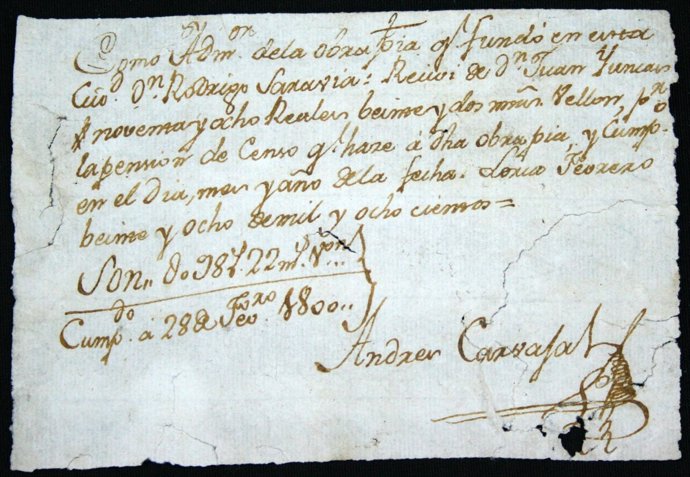 Como Admor. de la obra pia q. fundó en esta
Ciud. Dn. Rodrigo Saravia: Reciví de Dn. Juan
noventa y ocho Reales beinte y dos mrs. Vellon, pr.
la pension de Censo q. hace á dha obra pia, y Cumpo.
en el dia, mes y año de la fecha. Soria Febrero
beinte y ocho de mil y ocho cientos =
Son,, 98 rs. 22 ms. Von...
Cumpdo. á 28 de Febro. 1800..
Andres Carvajal